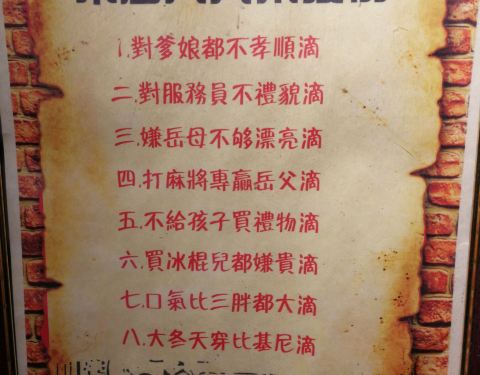 1.對爹娘都不孝順滴
二.對服務員不禮貌滴
三.嫌岳母不够漂亮滴
四.打麻將專贏岳父滴
五.不給孩子買禮物滴
六.買冰棍兒都嫌貴滴
七.口氣比三胖都大滴
八.大冬天穿比基尼滴